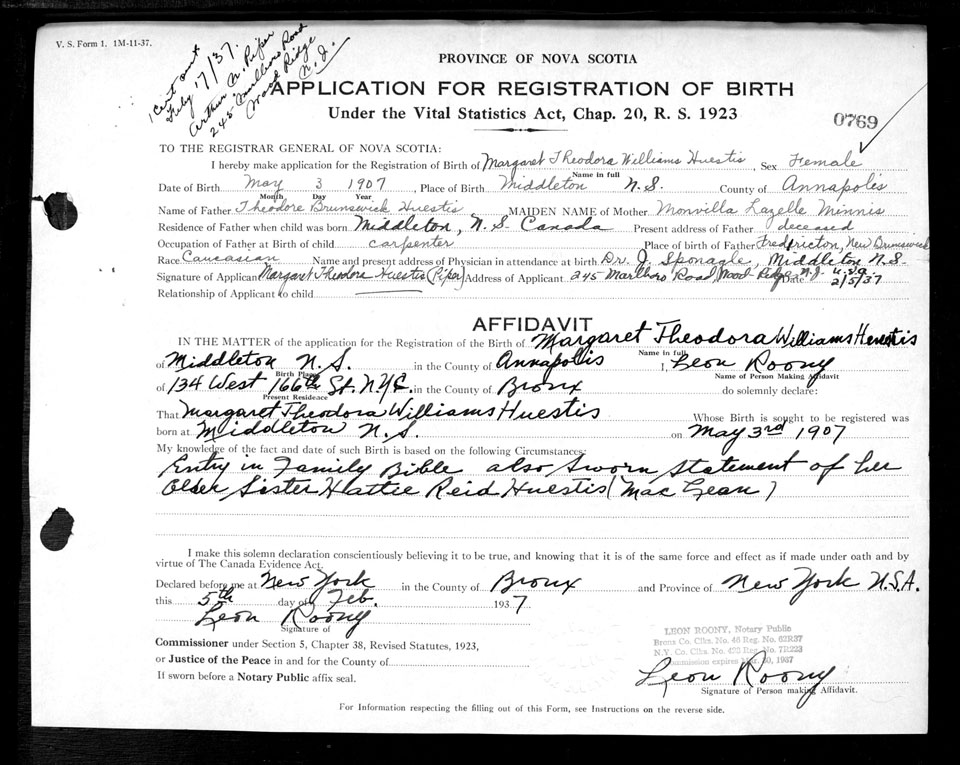 V. S. Form 1. 1M-11-37.
1 Cert sent
July 17/37.
Arthur N. Piper
245 Road
Wood Ridge
N. J.
PROVINCE OF NOVA SCOTIA
APPLICATION FOR REGISTRATION OF BIRTH
Under the Vital Statistics Act, Chap. 20, R. S. 1923
0769
TO THE REGISTRAR GENERAL OF NOVA SCOTIA:
I hereby make application for the Registration of Birth of Margaret Theodora Williams Huestis, Sex Female
Name in full
Date of Birth May 3 1907, Place of Birth Middleton N.S. County of Annapolis
Month Day Year
Name of Father Theodore Brunswick Huestis MAIDEN NAME of Mother Monvilla Lazelle Minnis
Residence of Father when child was born Middleton, N.S. Canada Present address of Father deceased
Occupation of Father at Birth of child carpenter Place of birth of Father Fredericton, New Brunswick
Race Caucasian Name and present address of Physician in attendance at birth Dr. J. Sponagle, Middleton N.S.
Signature of Applicant Margaret Theodora Huestis (Piper) Address of Applicant 245 Marlboro Road Wood Ridge N.J. U.S.A. Date 2/5/37
Relationship of Applicant to child
AFFIDAVIT
IN THE MATTER of the application for the Registration of the Birth of Margaret Theodora Williams Huestis
Name in full
of Middleton N.S. in the County of Annapolis I, Leon Roony
Birth Place
Name of Person Making Affidavit
of 134 West 166th St. N.Y.C. in the County of Bronx do solemnly declare:
Present Residence
That Margaret Theodora Williams Huestis Whose Birth is sought to be registered was
born at Middleton N.S. on May 3rd 1907
My knowledge of the fact and date of such Birth is based on the following Circumstances:
Entry in Family Bible also Sworn Statement of her
Older Sister Hattie Reid Huestis (Mac Lean)
I make this solemn declaration conscientiously believing it to be true, and knowing that it is of the same force and effect as if made under oath and by
virtue of The Canada Evidence Act.
Declared before me at New York in the County of Bronx and Province of New York U.S.A.
this 5th day of Feb. 1937
Leon Roony
Signature of
Commissioner under Section 5, Chapter 38, Revised Statutes, 1923,
or Justice of the Peace in and for the County of
If sworn before a Notary Public affix seal.
LEON ROONY, Notary Public
Bronx Co. Clks. No. 46 Reg. No. 62R37
N.Y. Co. Clks. No. 423 Reg. No. 7R223
Commission expires Mar. 30, 1937
Leon Roony
Signature of Person making Affidavit.
For Information respecting the filling out of this Form, see Instructions on the reverse side.